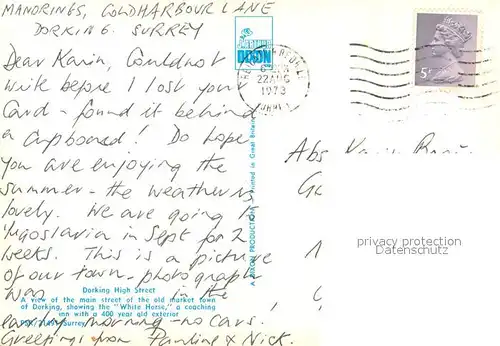 MANDRINGS, COLDHARBOUR LANE
DORKING. SURREY
Dear Karin, Could not
write before I lost your
Card - found it behind
a cupboard! Do hope
you are enjoying the
summer - the weather is
lovely. We are going
Jugoslavia in Sept for 2
weeks. This is a picture
of our town - photograph
was in the
early morning - no cars!
Greetings from Pauline & Nick.
Dorking High Street
A view of the main street of the old market town
of Dorking, showing the "White Horse," a coaching
inn with a 400 year old exterior
Surrey
DIXON
22 AUG
1973
5P
PRODUCTION - Printed in Great Britain
privacy protection
Datenschutz